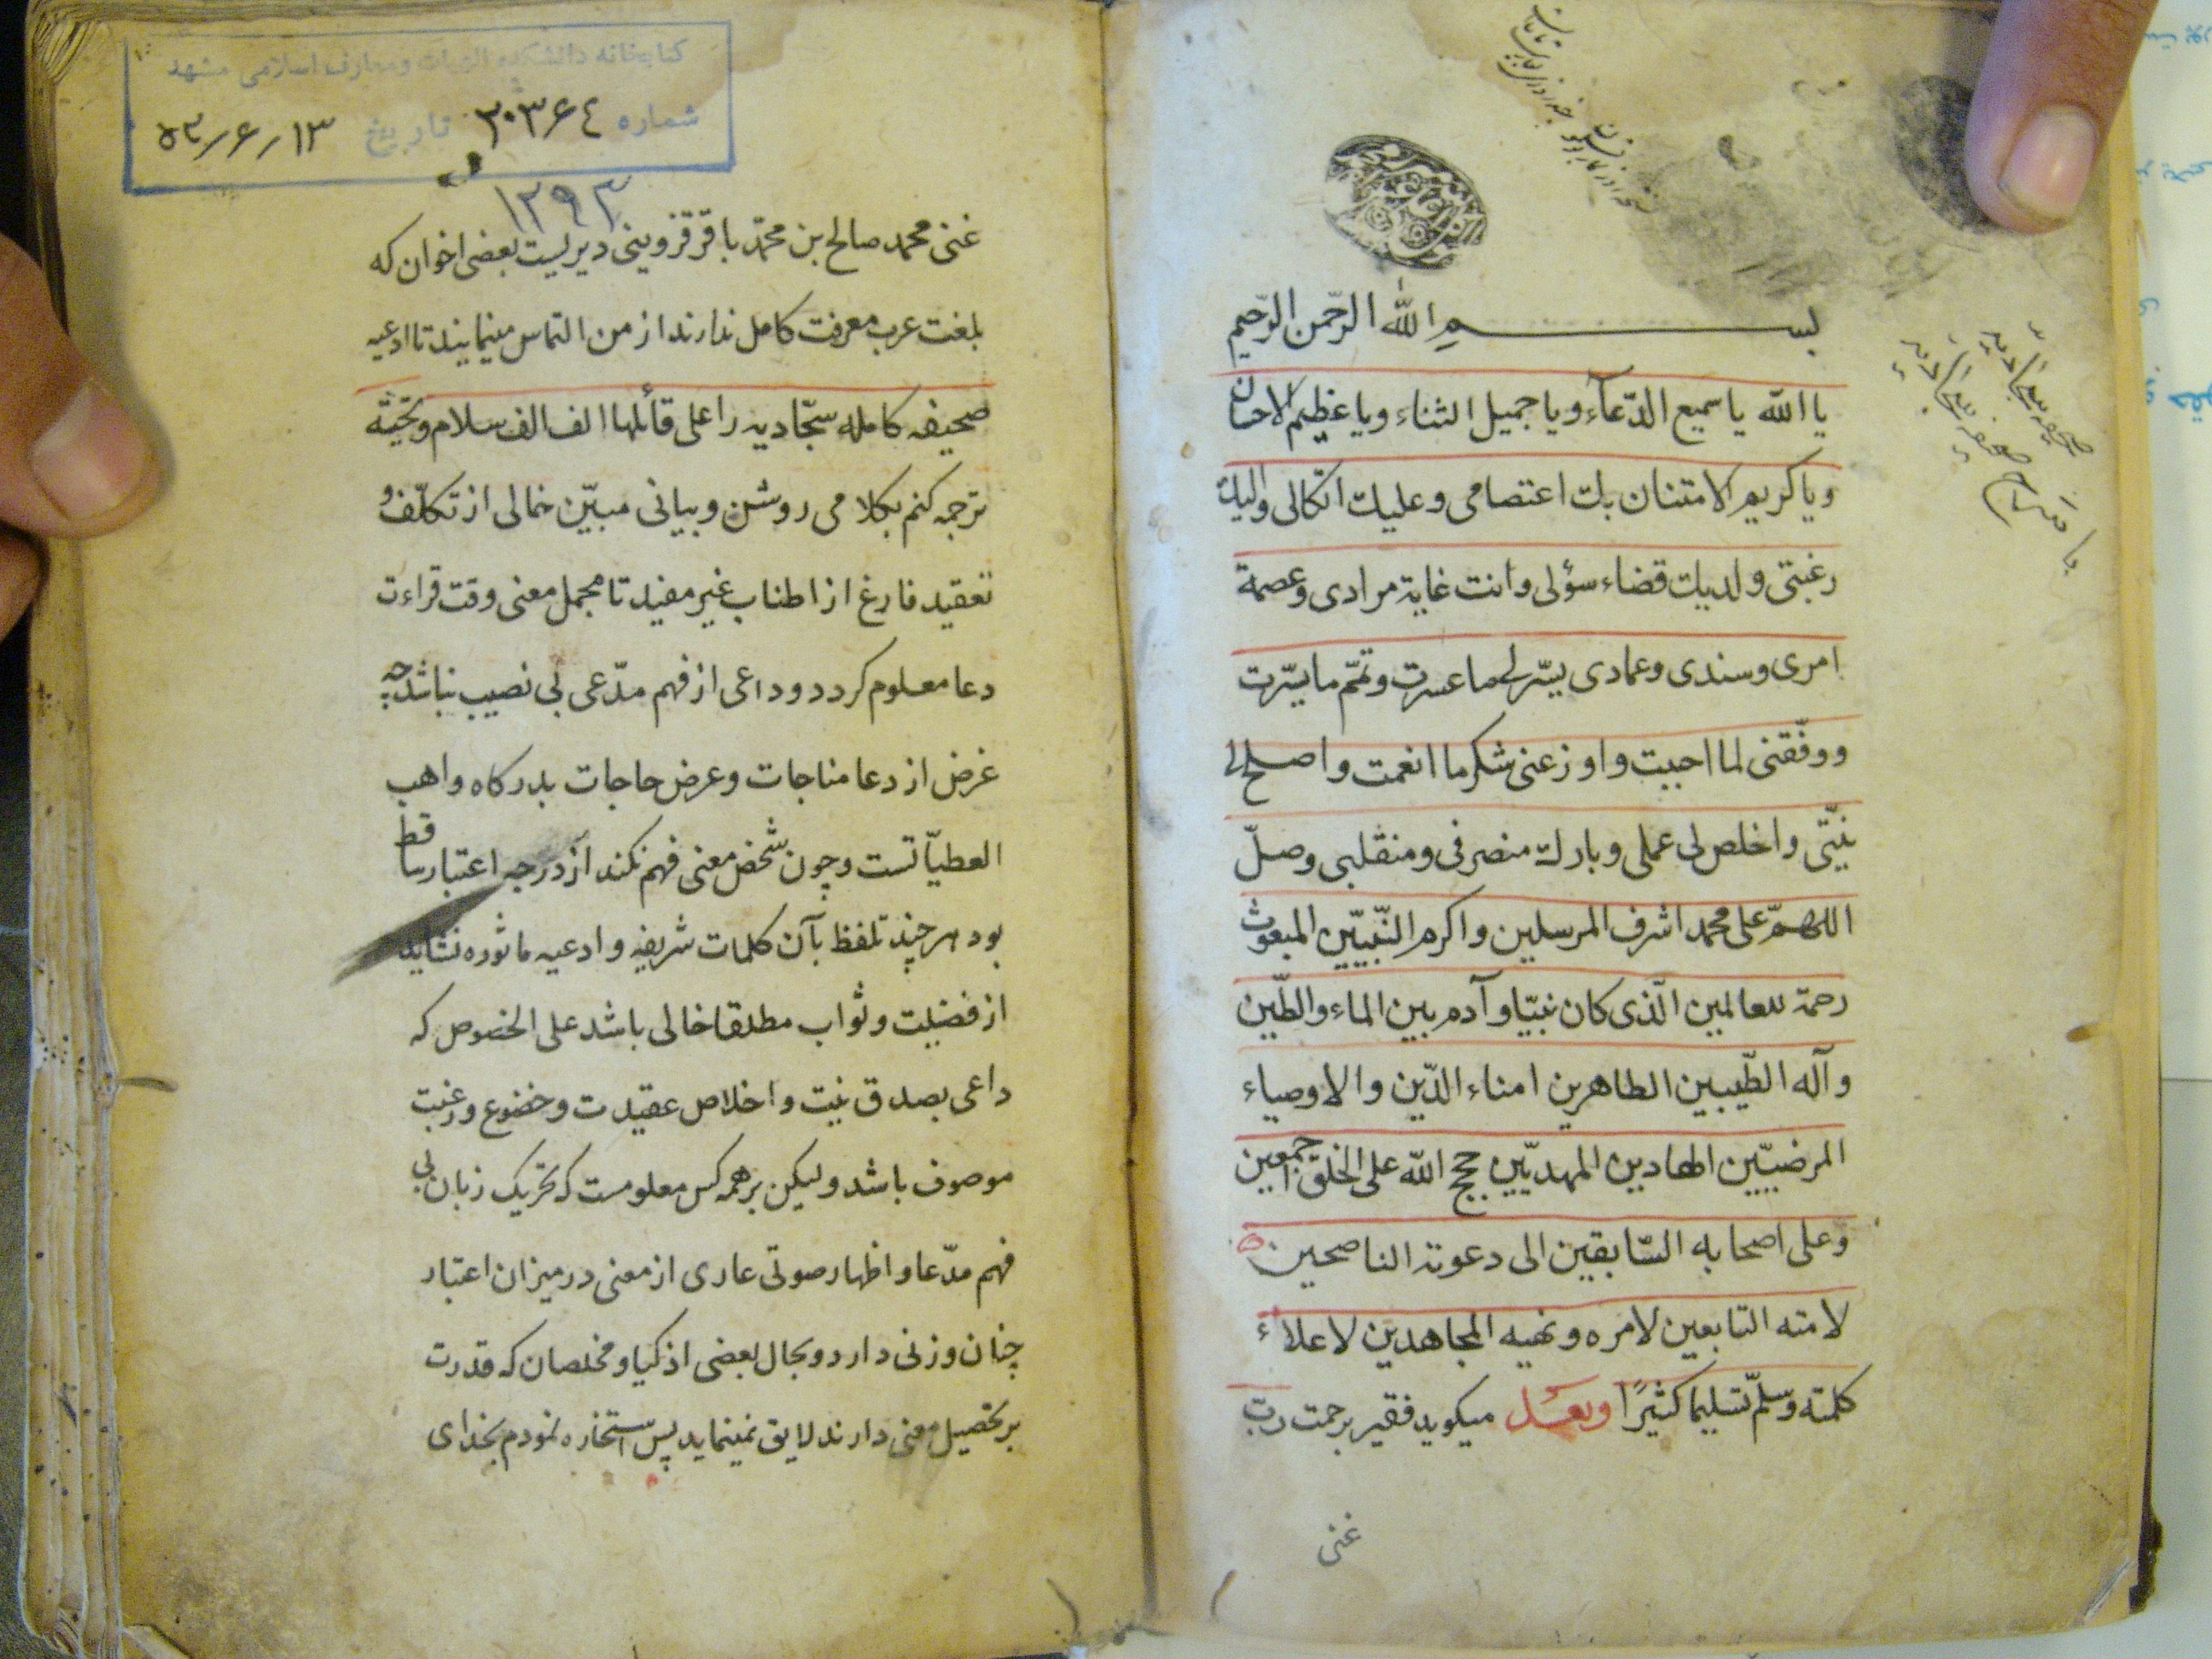 بسم الله الرّحمن الرّحیم
یا الله یا سمیع الدّعآء ویا جمیل الثناء ویا عظیم الاحسان
ویا کریم الامتنان بک اعتصامی وعلیک اتکالی والیک
رغبتی ولدیک قضاء سؤلی وانت غایة مرادی وعصمة
امری وسندی وعمادی یسّر لی ما عسرت وتمّم ما یسّرت
ووفّقنی لما احببت واوزعنی شکر ما انعمت واصلح لی
نیّتی واخلص لی عملی وبارک منصرفی ومنقلبی وصلّ
اللهمّ علی محمد اشرف المرسلین واکرم النّبیّین المبعوث
رحمة للعالمین الّذی کان نبیّا وآدم بین الماء والطّین
وآله الطّیبین الطاهرین امناء الدّین والاوصیاء
المرضیّین الهادین المهدیّین حجج الله علی الخلق اجمعین
وعلی اصحابه السّابقین الی دعوته الناصحین
لامته التابعین لامره ونهیه المجاهدین لاعلاء
کلمته وسلّم تسلیما کثیرًا وبعد میکوید فقیر برحمت ربّ
غنی
کتابخانه دانشکده الهیات ومعارف اسلامی مشهد
شماره ۳۰۳۶۴ تاریخ ۵۳٫۶٫۱۳
۱۲۹۳
غنی محمد صالح بن محمّد باقر قزوینی دیریست بعضی اخوان که
بلغت عرب معرفت کامل ندارند از من التماس مینمایند تا ادعیه
صحیفه کامله سجّادیه را علی قائلها الف الف سلام وتحیّة
ترجمه کنم بکلامی روشن وبیانی مبیّن خالی از تکلّف و
تعقید فارغ از اطناب غیر مفید تا مجمل معنی وقت قراءت
دعا معلوم کردد وداعی از فهم مدّعی بی نصیب نباشد چه
غرض از دعا مناجات وعرض حاجات بدرکاه واهب
العطیّاتست وچون شخص معنی فهم نکند از درجه اعتبار ساقط
بود هر چند تلفظ بآن کلمات شریفه وادعیه ماثوره نشاید
از فضیلت وثواب مطلقا خالی باشد علی الخصوص که
داعی بصدق نیت واخلاص عقیدت وخضوع ورغبت
موصوف باشد ولیکن بر همه کس معلومست که تحریک زبان بی
فهم مدّعا واظهار صوتی عاری از معنی در میزان اعتبار
چنان وزنی دارد وبحال بعضی اذکیا ومخلصان که قدرت
بر تحصیل معنی دارند لایق نمینماید پس استخاره نمودم بخدای